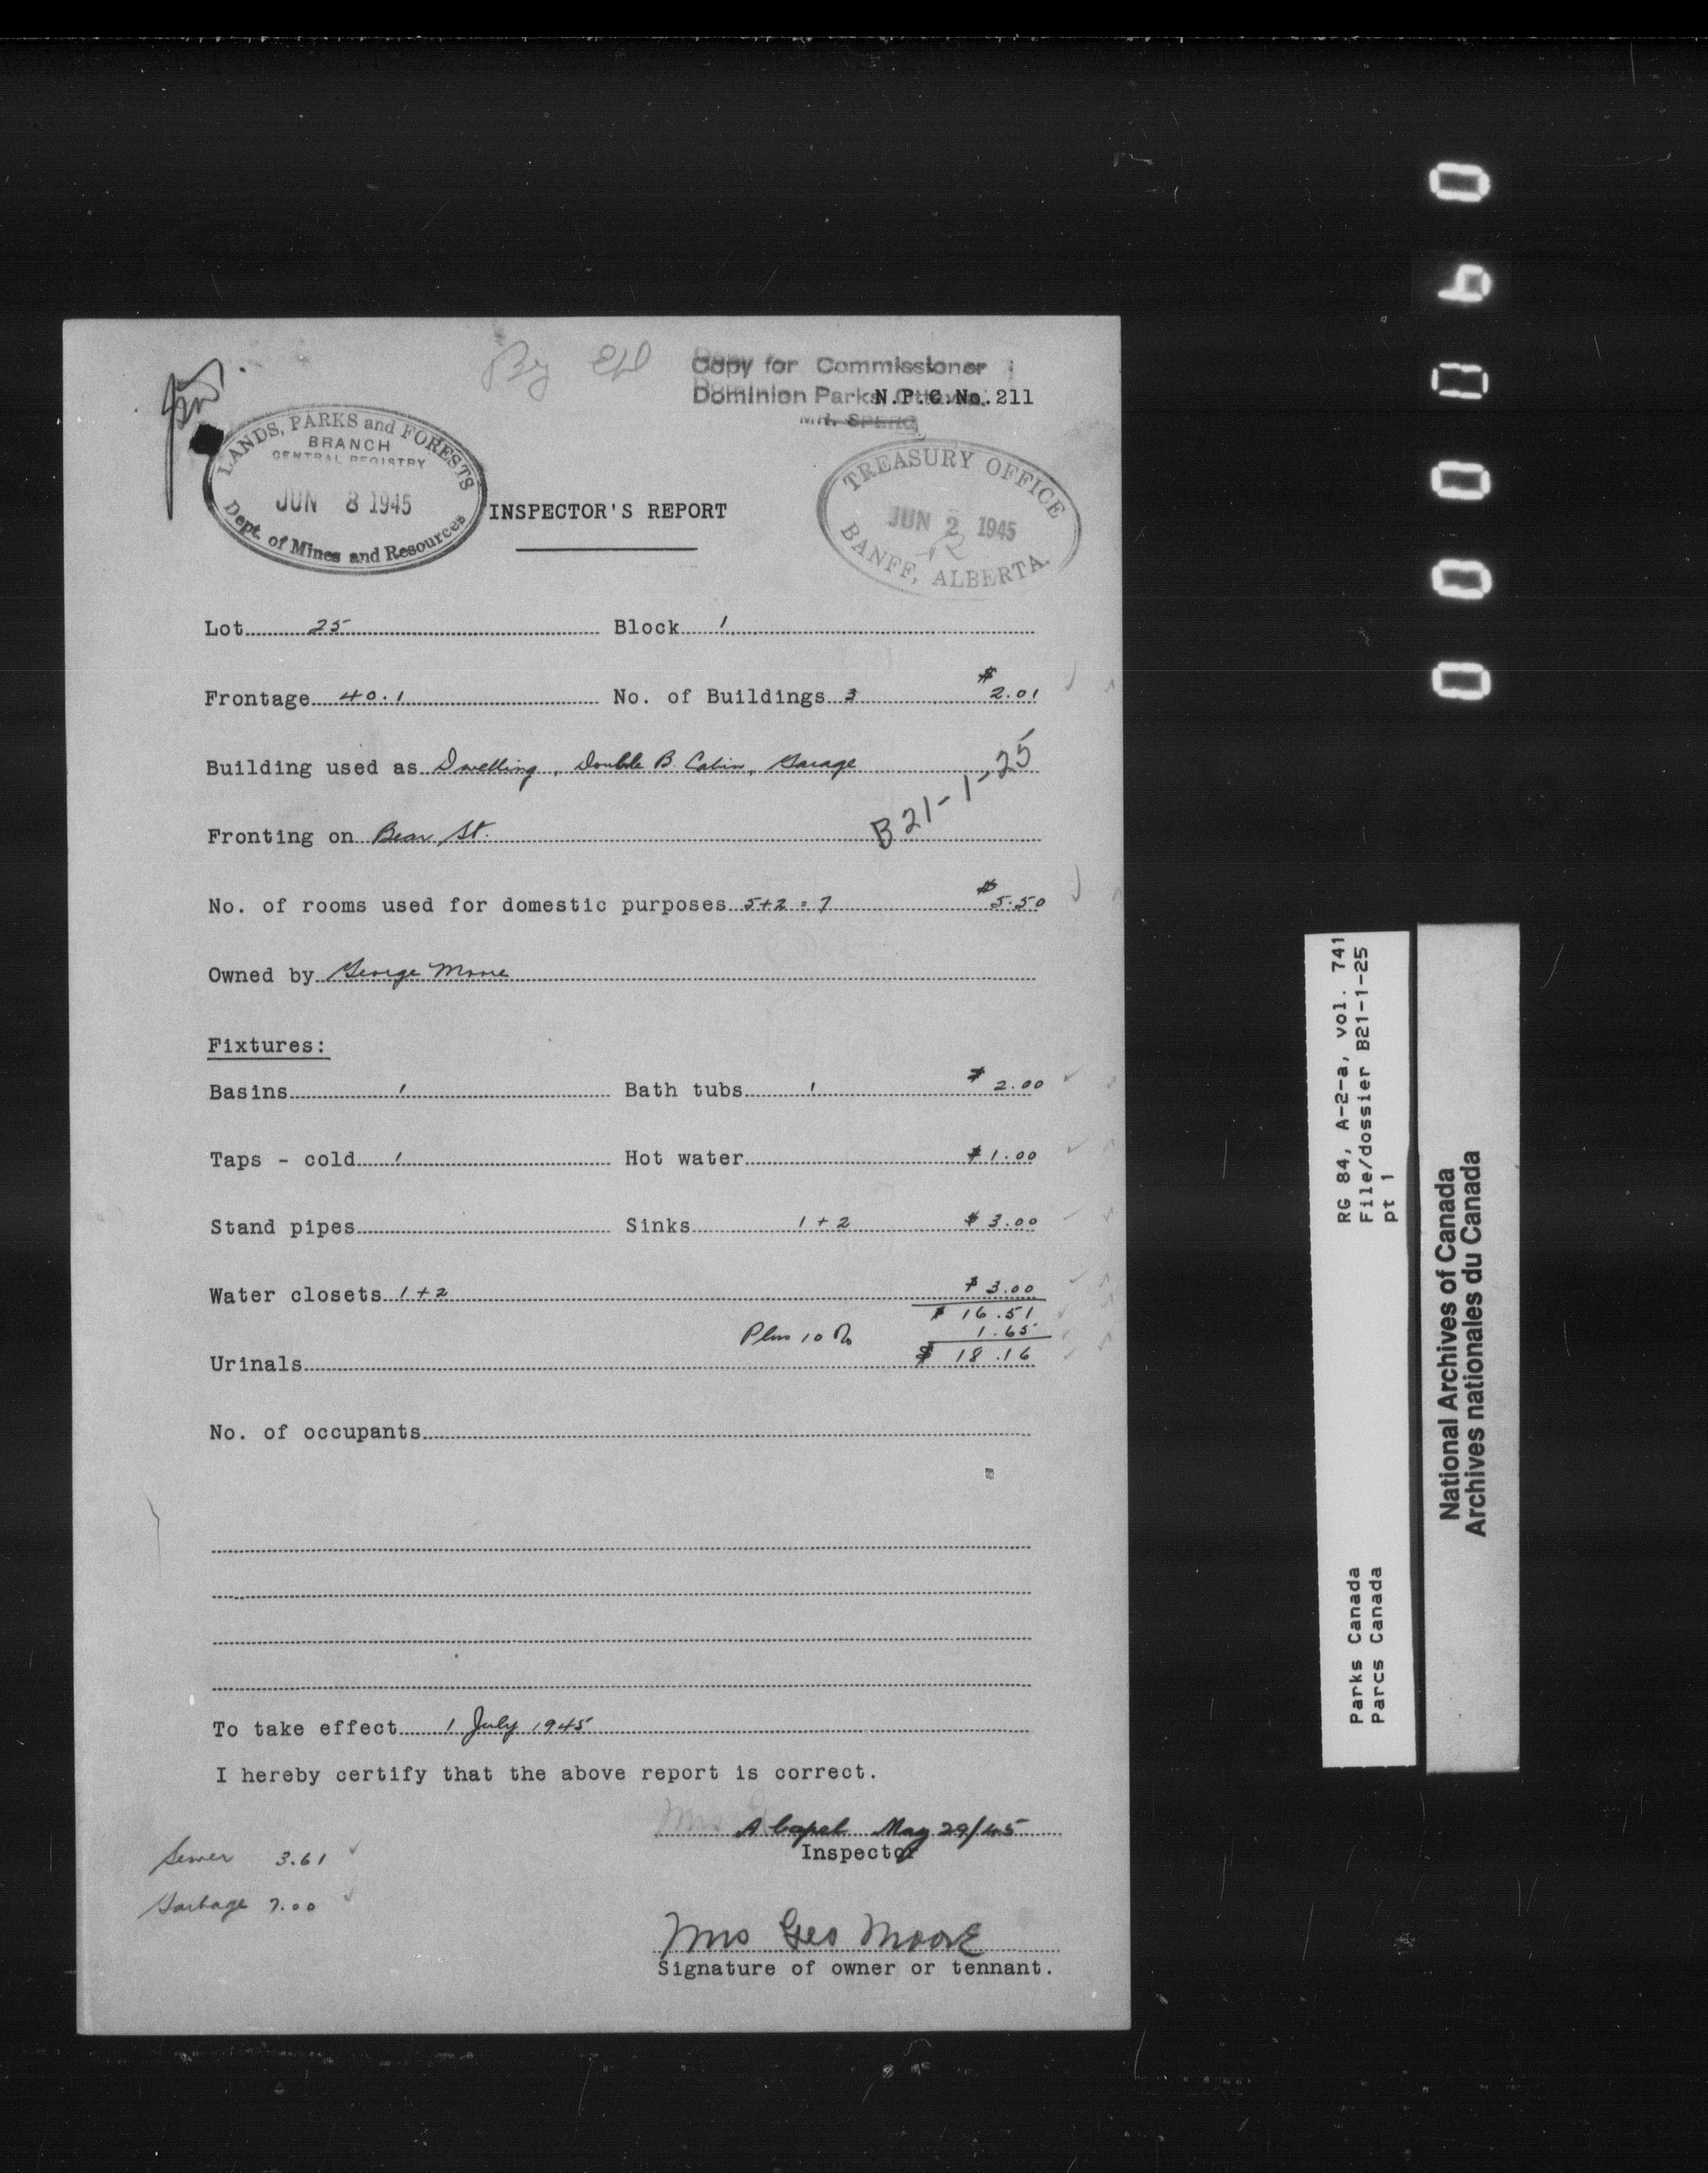 By
Copy for Commissioner
Dominion Parks, Ottawa. N.P.C.No. 211
MR. SPERO
LANDS, PARKS and FORESTS
BRANCH
CENTRAL REGISTRY
JUN 8 1945
Dept. of Mines and Resources
TREASURY OFFICE
JUN 2 1945
BANFF, ALBERTA.
INSPECTOR'S REPORT
Lot 25 Block 1
Frontage 40.1 No. of Buildings 3 $2.01
Building used as Dwelling, Double B. Cabin, Garage
B21-1-25
Fronting on Bear St.
No. of rooms used for domestic purposes 5+2 = 7 $5.50
Owned by George Moore
Fixtures:
Basins 1 Bath tubs 1 $2.00
Taps - cold 1 Hot water $1.00
Stand pipes Sinks 1+2 $3.00
Water closets 1+2 $3.00
$16.51
Plus 10% 1.65
Urinals $18.16
No. of occupants
To take effect 1 July 1945
I hereby certify that the above report is correct.
A Capel May 29/45
Inspector
Sewer 3.61
Garbage 7.00
Mrs Geo Moore
Signature of owner or tennant.
RG 84, A-2-a, vol. 741
File/dossier B21-1-25
pt 1
Parks Canada
Parcs Canada
National Archives of Canada
Archives nationales du Canada